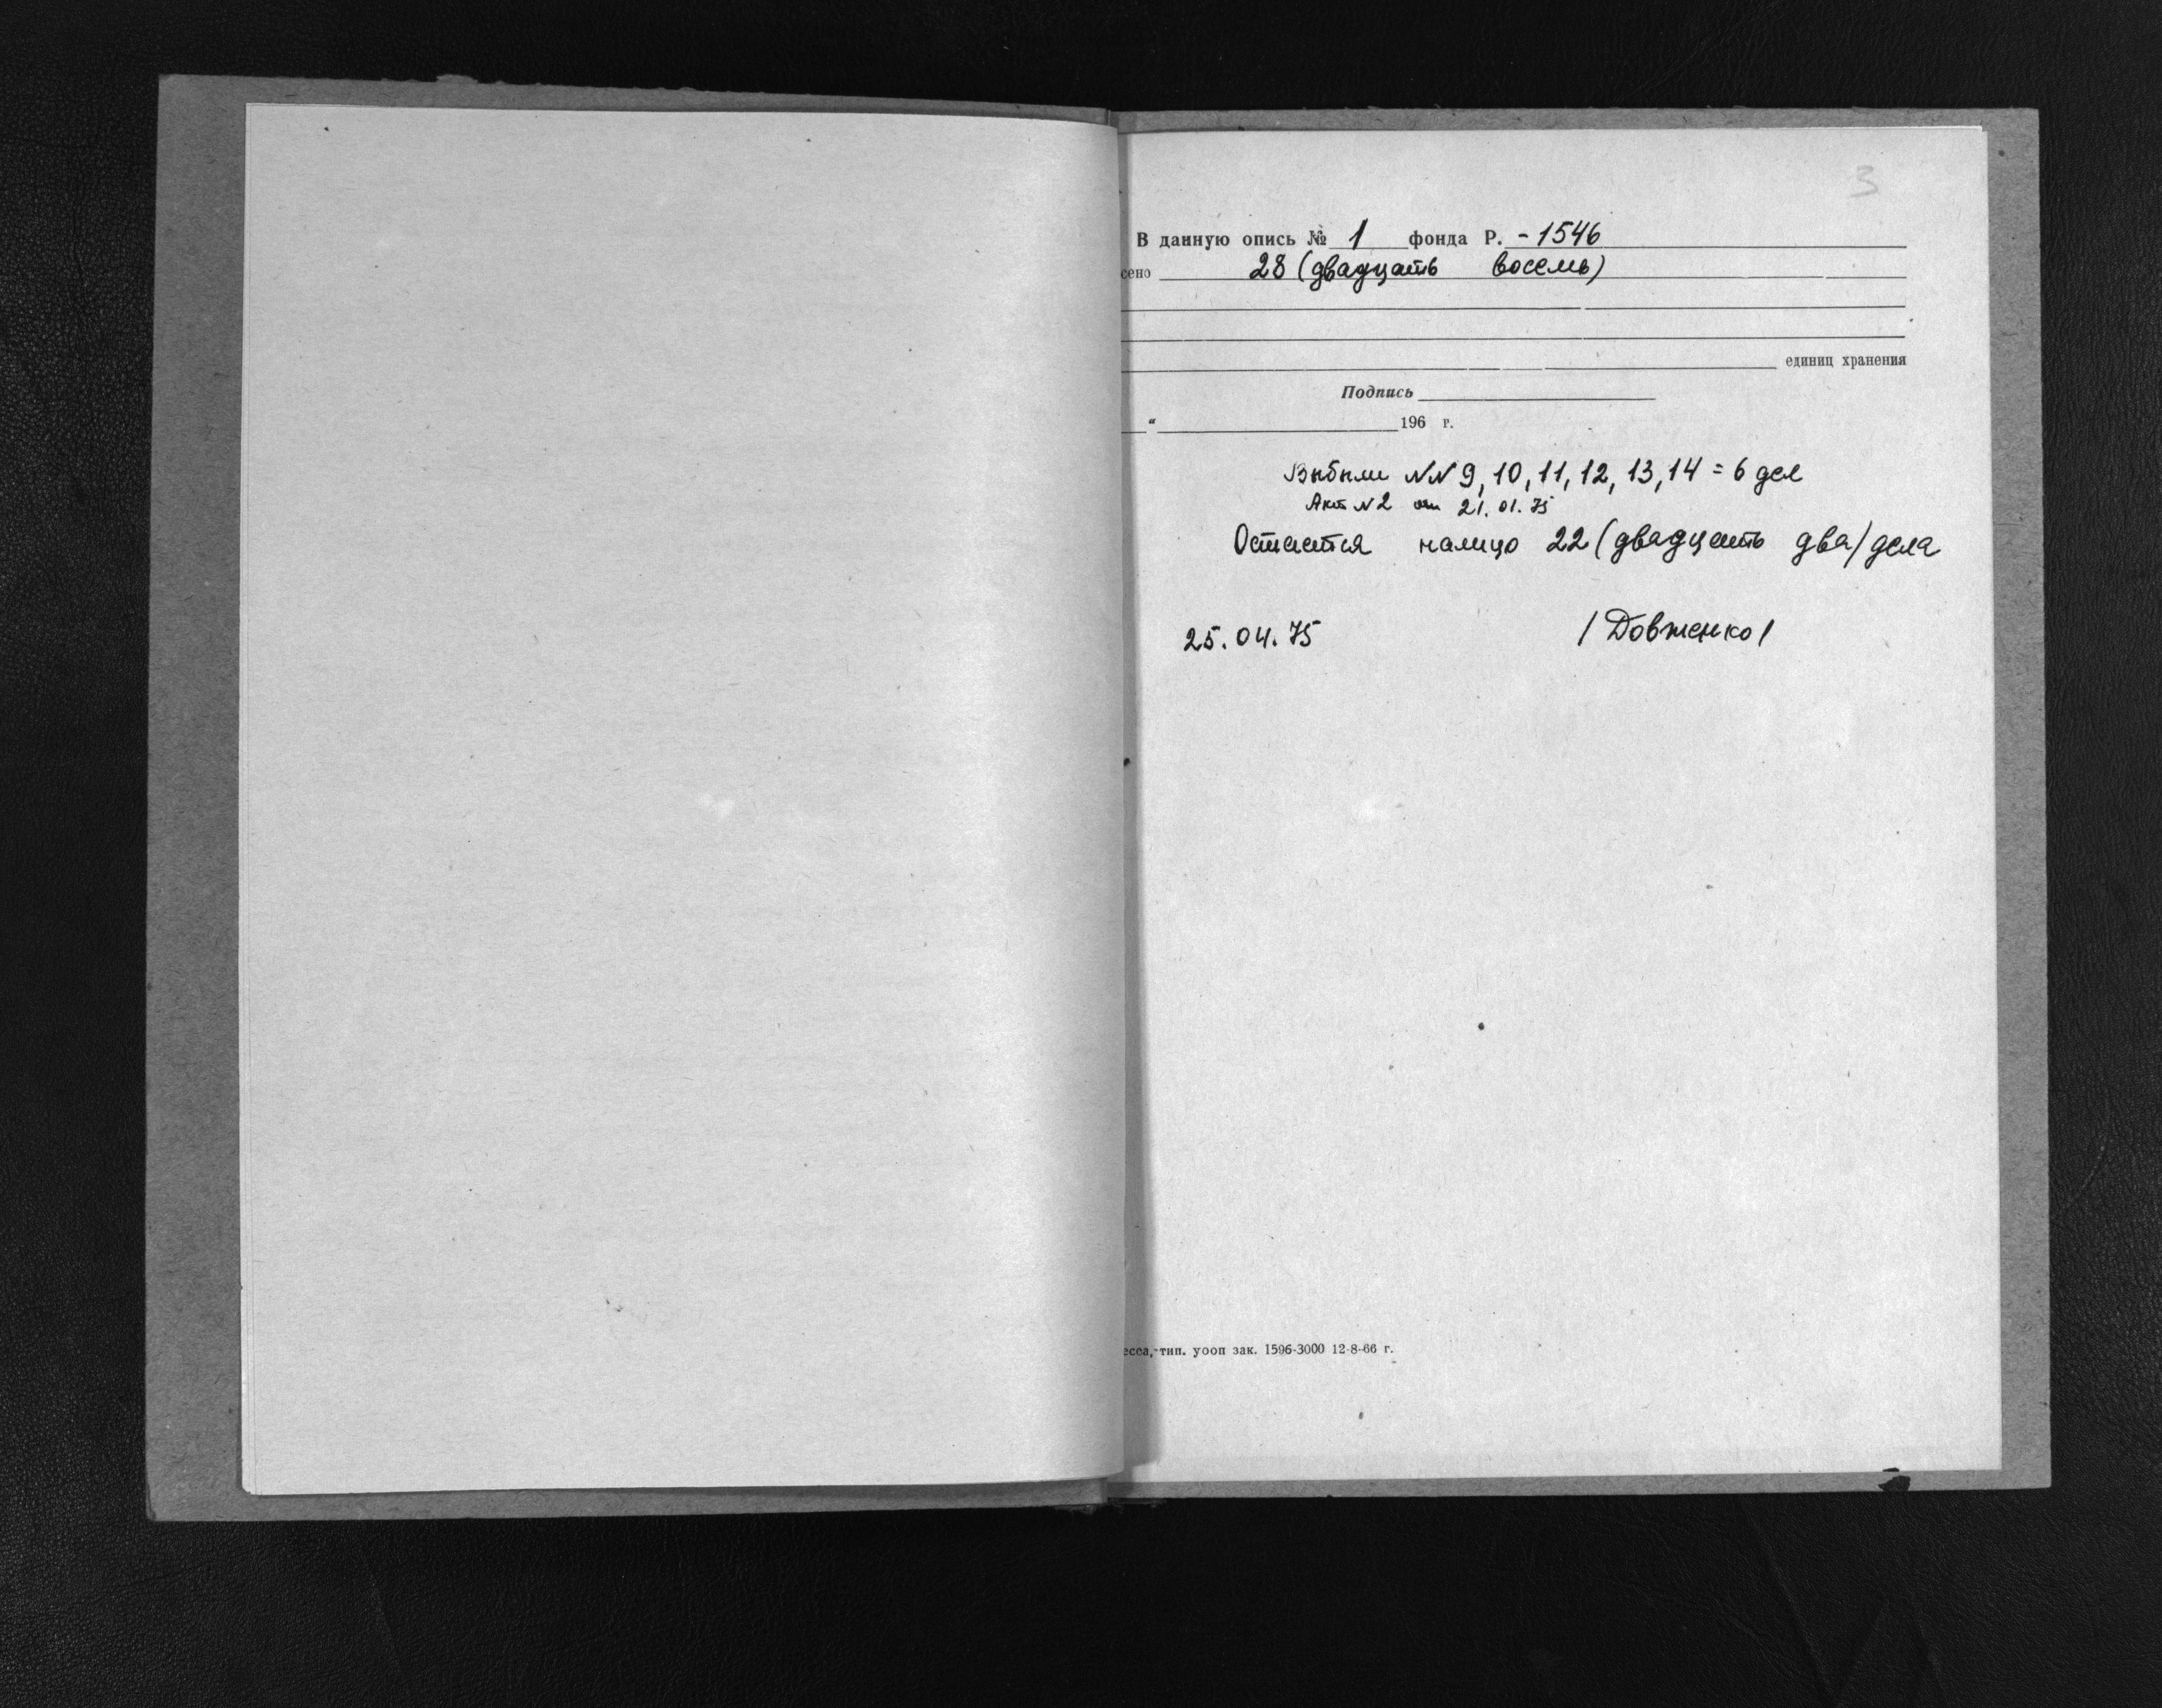 3
В данную опись № 1 фонда Р. -1546
сено 28 (двадцать восемь)
единиц хранения
Подпись
" 196 г.
Выбыли NN 9, 10, 11, 12, 13, 14 = 6 дел
Акт N 2 от 21.01.75
Остается налицо 22 (двадцать два) дела
25.04.75 /Довженко/
есса, тип. уооп зак. 1596-3000 12-8-66 г.